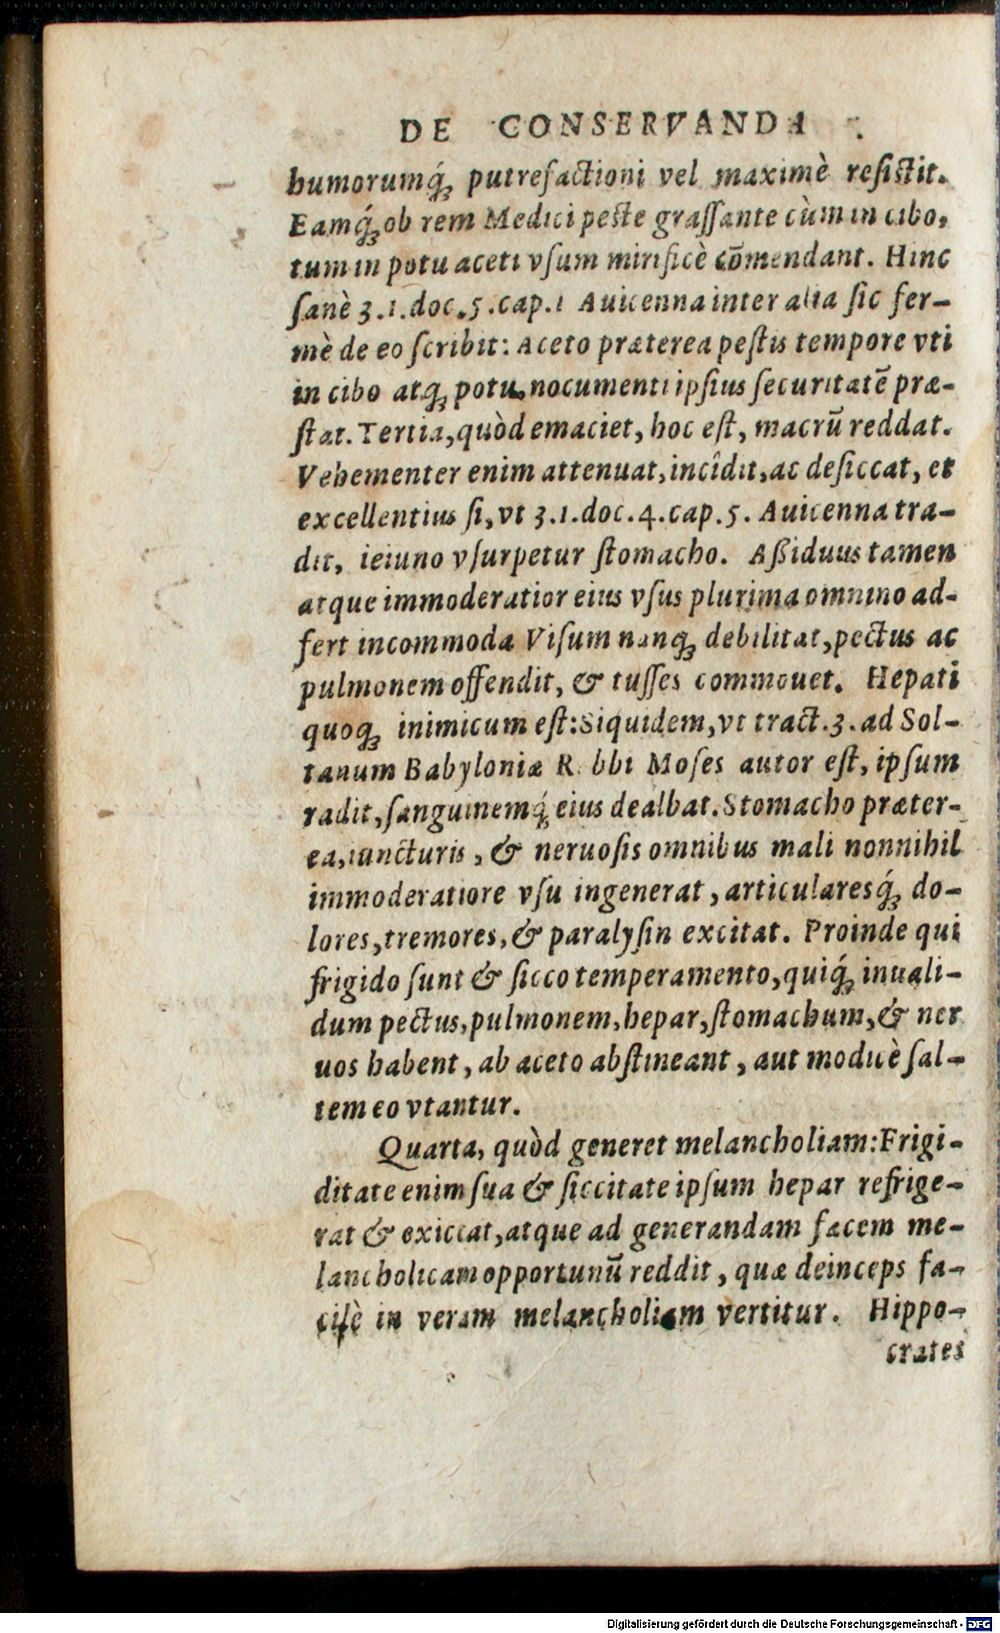 DE CONSERVANDA
humorumq́ꝫ putrefactioni vel maximè reſiſtit.
Eamq́ꝫ ob rem Medici peſte graſſante cùm in cibo,
tum in potu aceti vſum mirificè cōmendant. Hinc
ſanè 3.1.doc.5.cap.1 Auicenna inter alia ſic fer-
mè de eo ſcribit: Aceto præterea peſtis tempore vti
in cibo atqꝫ potu, nocumenti ipſius ſecuritatē præ-
ſtat. Tertia, quòd emaciet, hoc eſt, macrū reddat.
Vehementer enim attenuat, incîdit, ac deſiccat, et
excellentius ſi, vt 3.1.doc.4.cap.5. Auicenna tra-
dit, ieiuno vſurpetur ſtomacho. Aßiduus tamen
atque immoderatior eius vſus plurima omnino ad-
fert incommoda Viſum nanqꝫ debilitat, pectus ac
pulmonem offendit, & tuſſes commouet. Hepati
quoqꝫ inimicum eſt: Siquidem, vt tract.3. ad Sol-
tanum Babyloniæ R bbi Moſes autor eſt, ipſum
radit, ſanguinemq́ꝫ eius dealbat. Stomacho præter-
ea, iuncturis, & neruoſis omnibus mali nonnihil
immoderatiore vſu ingenerat, articulares q́ꝫ do-
lores, tremores, & paralyſin excitat. Proinde qui
frigido ſunt & ſicco temperamento, quiq́ꝫ inuali-
dum pectus, pulmonem, hepar, ſtomachum, & ner
uos habent, ab aceto abſtineant, aut modicè ſal-
tem eo vtantur.
Quarta, quòd generet melancholiam: Frigi-
ditate enim ſua & ſiccitate ipſum hepar refrige-
rat & exiccat, atque ad generandam facem me-
lancholicam opportunū reddit, quæ deinceps fa-
cilè in veram melancholiam vertitur. Hippo-
crates
Digitalisierung gefördert durch die Deutsche Forschungsgemeinschaft - DFG